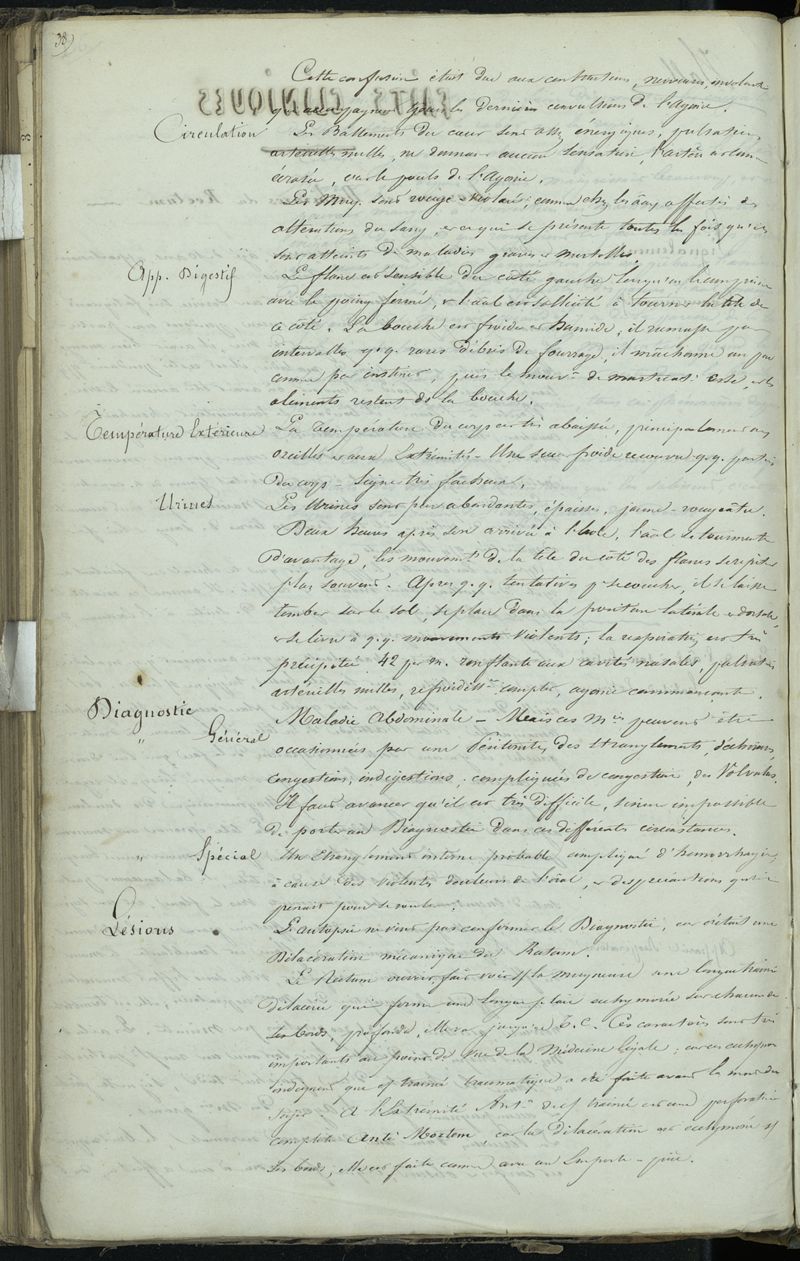 38)
Cette confusion était due aux contractions nerveuses, involont.
qui accompagnent tous les derniers convulsions de l'Agonie.
Circulation Les Battements du cœur sont assez énergiques, pulsations
artérielles nulles, ne donnant aucune sensation, l'artère
c'est le pouls de l'Agonie.
Les Muq. sont rouge-violacé, comme chez les aâx affectés des
altérations du sang, ce qui se présente toutes les fois qu'ils
sont atteints de maladies graves et mortelles.
App. Digestif Le flanc est sensible du côté gauche lorsqu'on le comprime
avec le poing fermé, & l'aâl est sollicité à tourner la tête de
ce côté. La bouche est froide et humide, il ramasse par
intervalles q.q. rares débris de fourrage, il mâchonne un peu
comme par instinct, puis le mouvt de masticat. cesse, et les
aliments restent ds la bouche.
Température Extérieure La température du corps est très abaissée, principalement aux
oreilles et aux Extrémités - Une sueur froide recouvre q.q. parties
du corps - Signe très fâcheux.
Urines Les Urines sont peu abondantes, épaisses, jaune-rougeâtre.
Deux heures après son arrivée à l'école, l'aâl se tourmente
d'avantage, les mouvents de la tête du côté des flancs se répètent
plus souvent. Après q.q. tentatives pr se coucher, il se laisse
tomber sur le sol, se place dans la position latérale et dorsale,
& se livre à q.q. mouvements violents; la respiration est très
précipitée 42 par m. ronflante aux cavités nasales, pulsations
artérielles nulles, refroidisst complet, agonie commençante.
Diagnostic
" Général Maladie Abdominale - Mais ces mies peuvent être
occasionnées par une Péritonite, des étranglements, déchirures,
congestions, indigestions, compliquées de congestion, des Volvulus.
Il faut avancer qu'il est très difficile, sinon impossible
de porter un Diagnostic dans ces différentes circonstances.
" Spécial Un étranglement interne probable compliqué d'hémorrhagie,
à cause des violents douleurs de l'aâl, & des précautions qu'il
prenait pour se rouler.
Lésions L'autopsie ne vint pas confirmer le Diagnostic, car c'était une
Dilacération mécanique du Rectum.
Le Rectum ouvert, fait voir sr la muqueuse une longue trainée
dilacérée qui forme une longue plaie ecchymosée sur chacun de
ses bords, profonde, elle va jusqu'au T. C. Ces caractères sont très
importants au point de vue de la Médecine légale, car ces ecchymoses
indiquent que cette trainée traumatique a été faite avant la mort du
sujet. A l'Extrémité Antre de cette trainée est une perforation
complète Anté Mortem, car la Dilacération est ecchymosée sr
ses bords, elle est faite comme avec un Emporte-pièce.